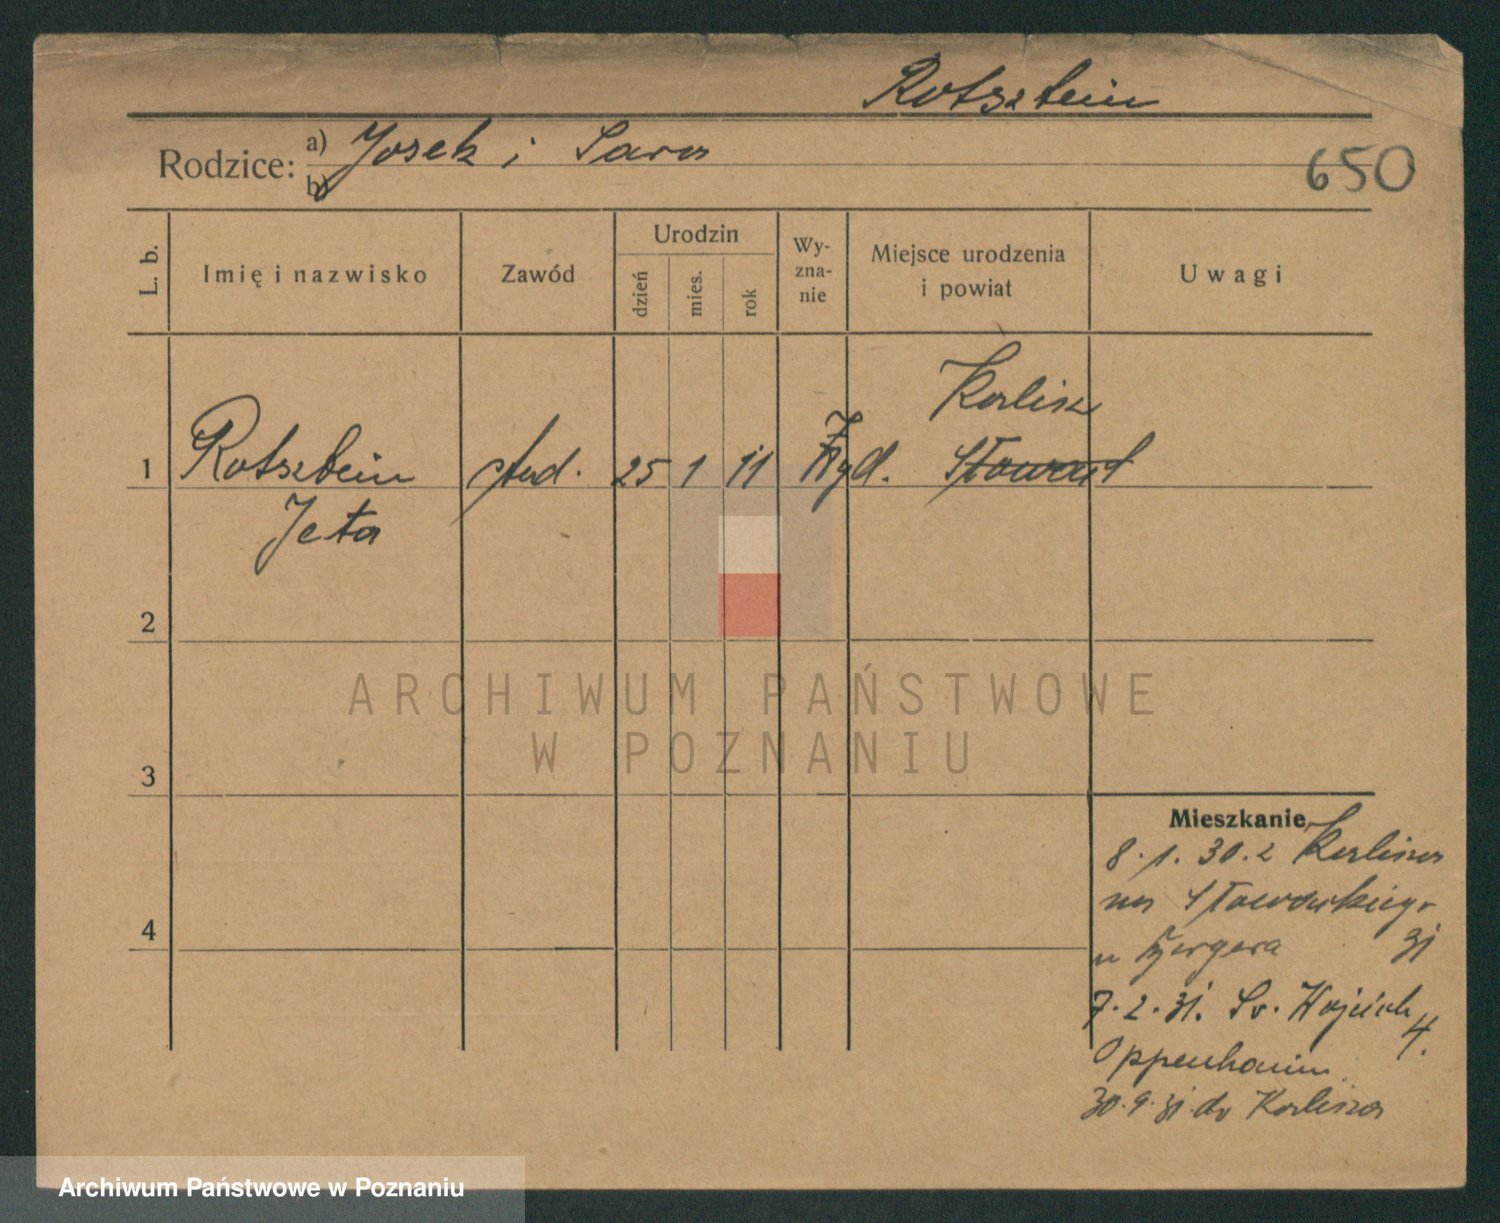 Rotsztein
Rodzice:
a) Josek i Sara
b)
650
L. b.
Imię i nazwisko
Zawód
Urodzin
dzień
mies.
rok
Wy-
zna-
nie
Miejsce urodzenia
i powiat
Uwagi
Kalisz
1 Rotsztein stud. 25 1 11 żyd.
Jeta
2
ARCHIWUM PAŃSTWOWE
W POZNANIU
3
Mieszkanie
8.1.30. z Kalisza
na Słowackiego
u 31
7.2.31. Św. Wojciech
Oppenhaim 4.
4
30.9.31. do Kalisza
Archiwum Państwowe w Poznaniu